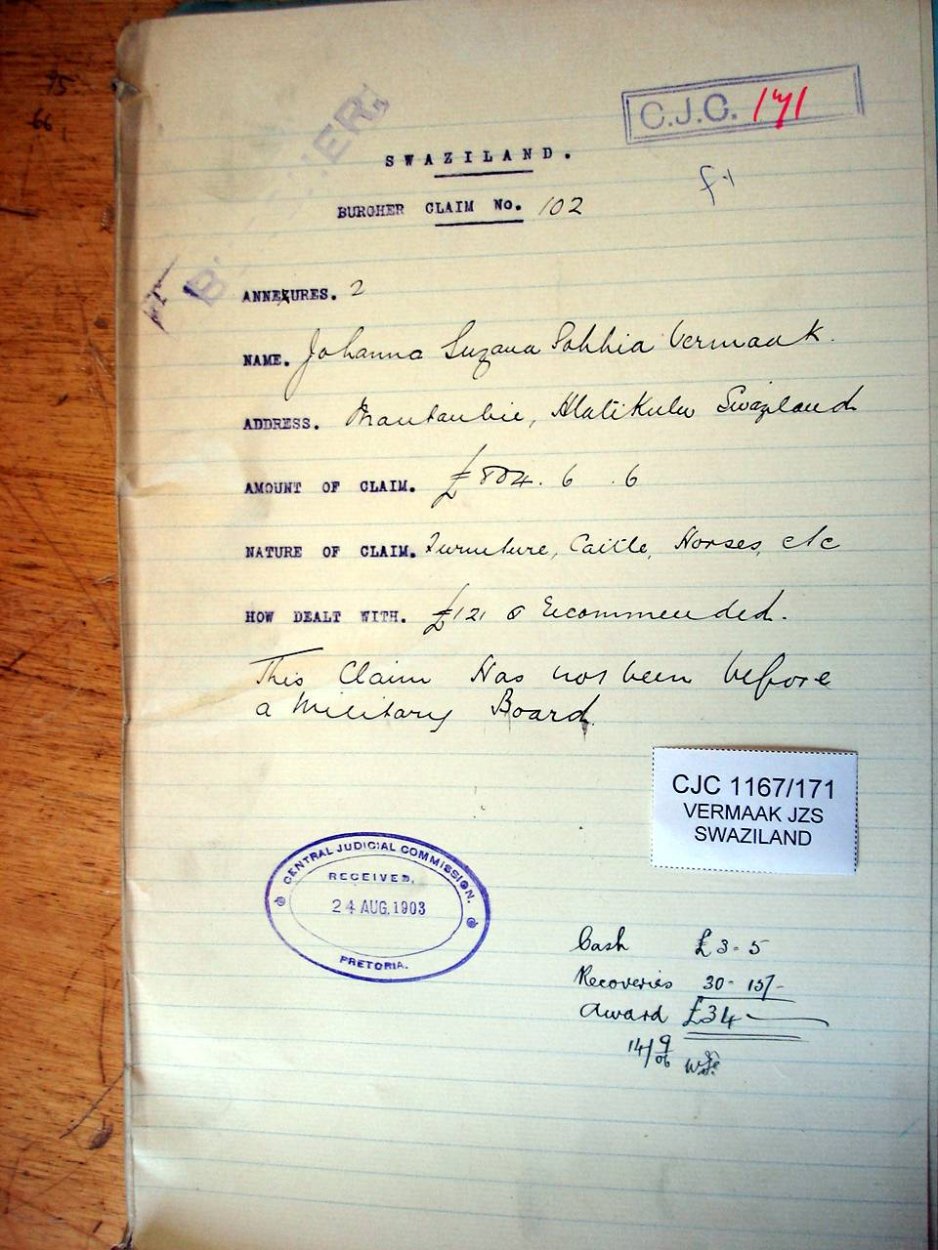 75
66
C.J.C. 171
SWAZILAND.
BURGHER CLAIM No. 102
ANNEXURES. 2
NAME. Johanna Suzana Sophia Vermaak.
ADDRESS. Hlatikulu Swaziland
AMOUNT OF CLAIM. £804. 6. 6
NATURE OF CLAIM. Furniture, Cattle, Horses, etc
HOW DEALT WITH. £121 Recommended.
This Claim Has not been before
a Military Board.
CJC 1167/171
VERMAAK JZS
SWAZILAND
CENTRAL JUDICIAL COMMISSION.
RECEIVED,
24 AUG. 1903
PRETORIA.
Cash £3-5
Recoveries 30-15/-
Award £34
14/9/06